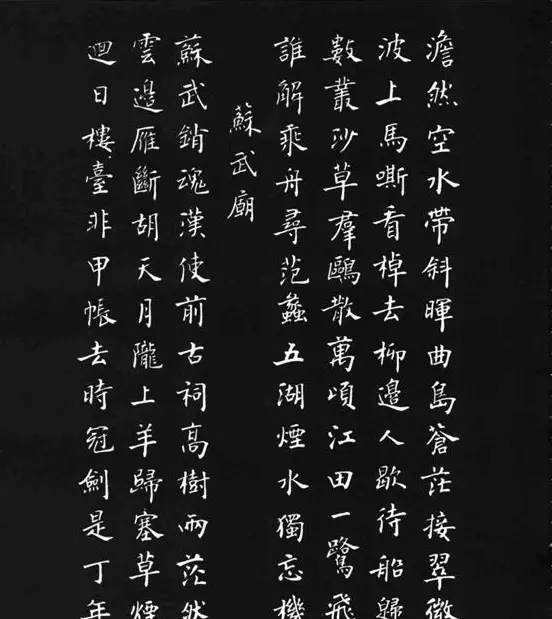 澹然空水帶斜暉曲島蒼茫接翠微
波上馬嘶看棹去柳邊人歇待船歸
數叢沙草羣鷗散萬頃江田一鷺飛
誰解乘舟尋范蠡五湖煙水獨忘機
蘇武廟
蘇武銷魂漢使前古祠高樹兩茫然
雲邊雁斷胡天月隴上羊歸塞草煙
迴日樓臺非甲帳去時冠劍是丁年